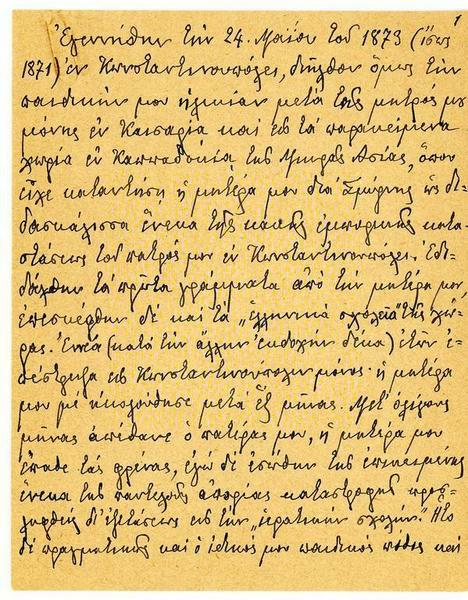 1
Ἐγεννήθην τὴν 24. Μαΐου τοῦ 1873 (ἴσως
1871) ἐν Κωνσταντινουπόλει, διῆλθον ὅμως τὴν
παιδικήν μου ἡλικίαν μετὰ τῆς μητρός μου
μόνης ἐν Καισαρίᾳ καὶ εἰς τὰ παρακείμενα
χωρία ἐν Καππαδοκίᾳ τῆς Μικρᾶς Ἀσίας, ὅπου
εἶχε καταντήσῃ ἡ μητέρα μου διὰ Σμύρνης ὡς δι-
δασκάλισσα ἕνεκα τῆς κακῆς ἐμπορικῆς κατα-
στάσεως τοῦ πατρός μου ἐν Κωνσταντινουπόλει. Ἐδι-
δάχθην τὰ πρῶτα γράμματα ἀπὸ τὴν μητέρα μου,
ἐπεσκέφθην δὲ καὶ τὰ „ἑλληνικὰ σχολεῖα" τῆς χώ-
ρας. Ἐννέα (κατὰ τὴν ἄλλην ἐκδοχὴν δέκα) ἐτῶν ἐ-
πέστρεψα εἰς Κωνσταντινούπολιν μόνος· ἡ μητέρα
μου μὲ ἠκολούθησε μετὰ ἓξ μῆνας. Μετ' ὀλίγους
μῆνας ἀπέθανε ὁ πατέρας μου, ἡ μητέρα μου
ἔπαθε τὰς φρένας, ἐγὼ δὲ ἐσώθην τῆς ἐπικειμένης
ἕνεκα τῆς παντελοῦς ἀπορίας καταστροφῆς προσ-
ληφθεὶς δι' ἐξετάσεως εἰς τὴν „ἱερατικὴν σχολήν". Ἦτο
δὲ πραγματικῶς καὶ ὁ ἰδικός μου παιδικὸς πόθος καὶ